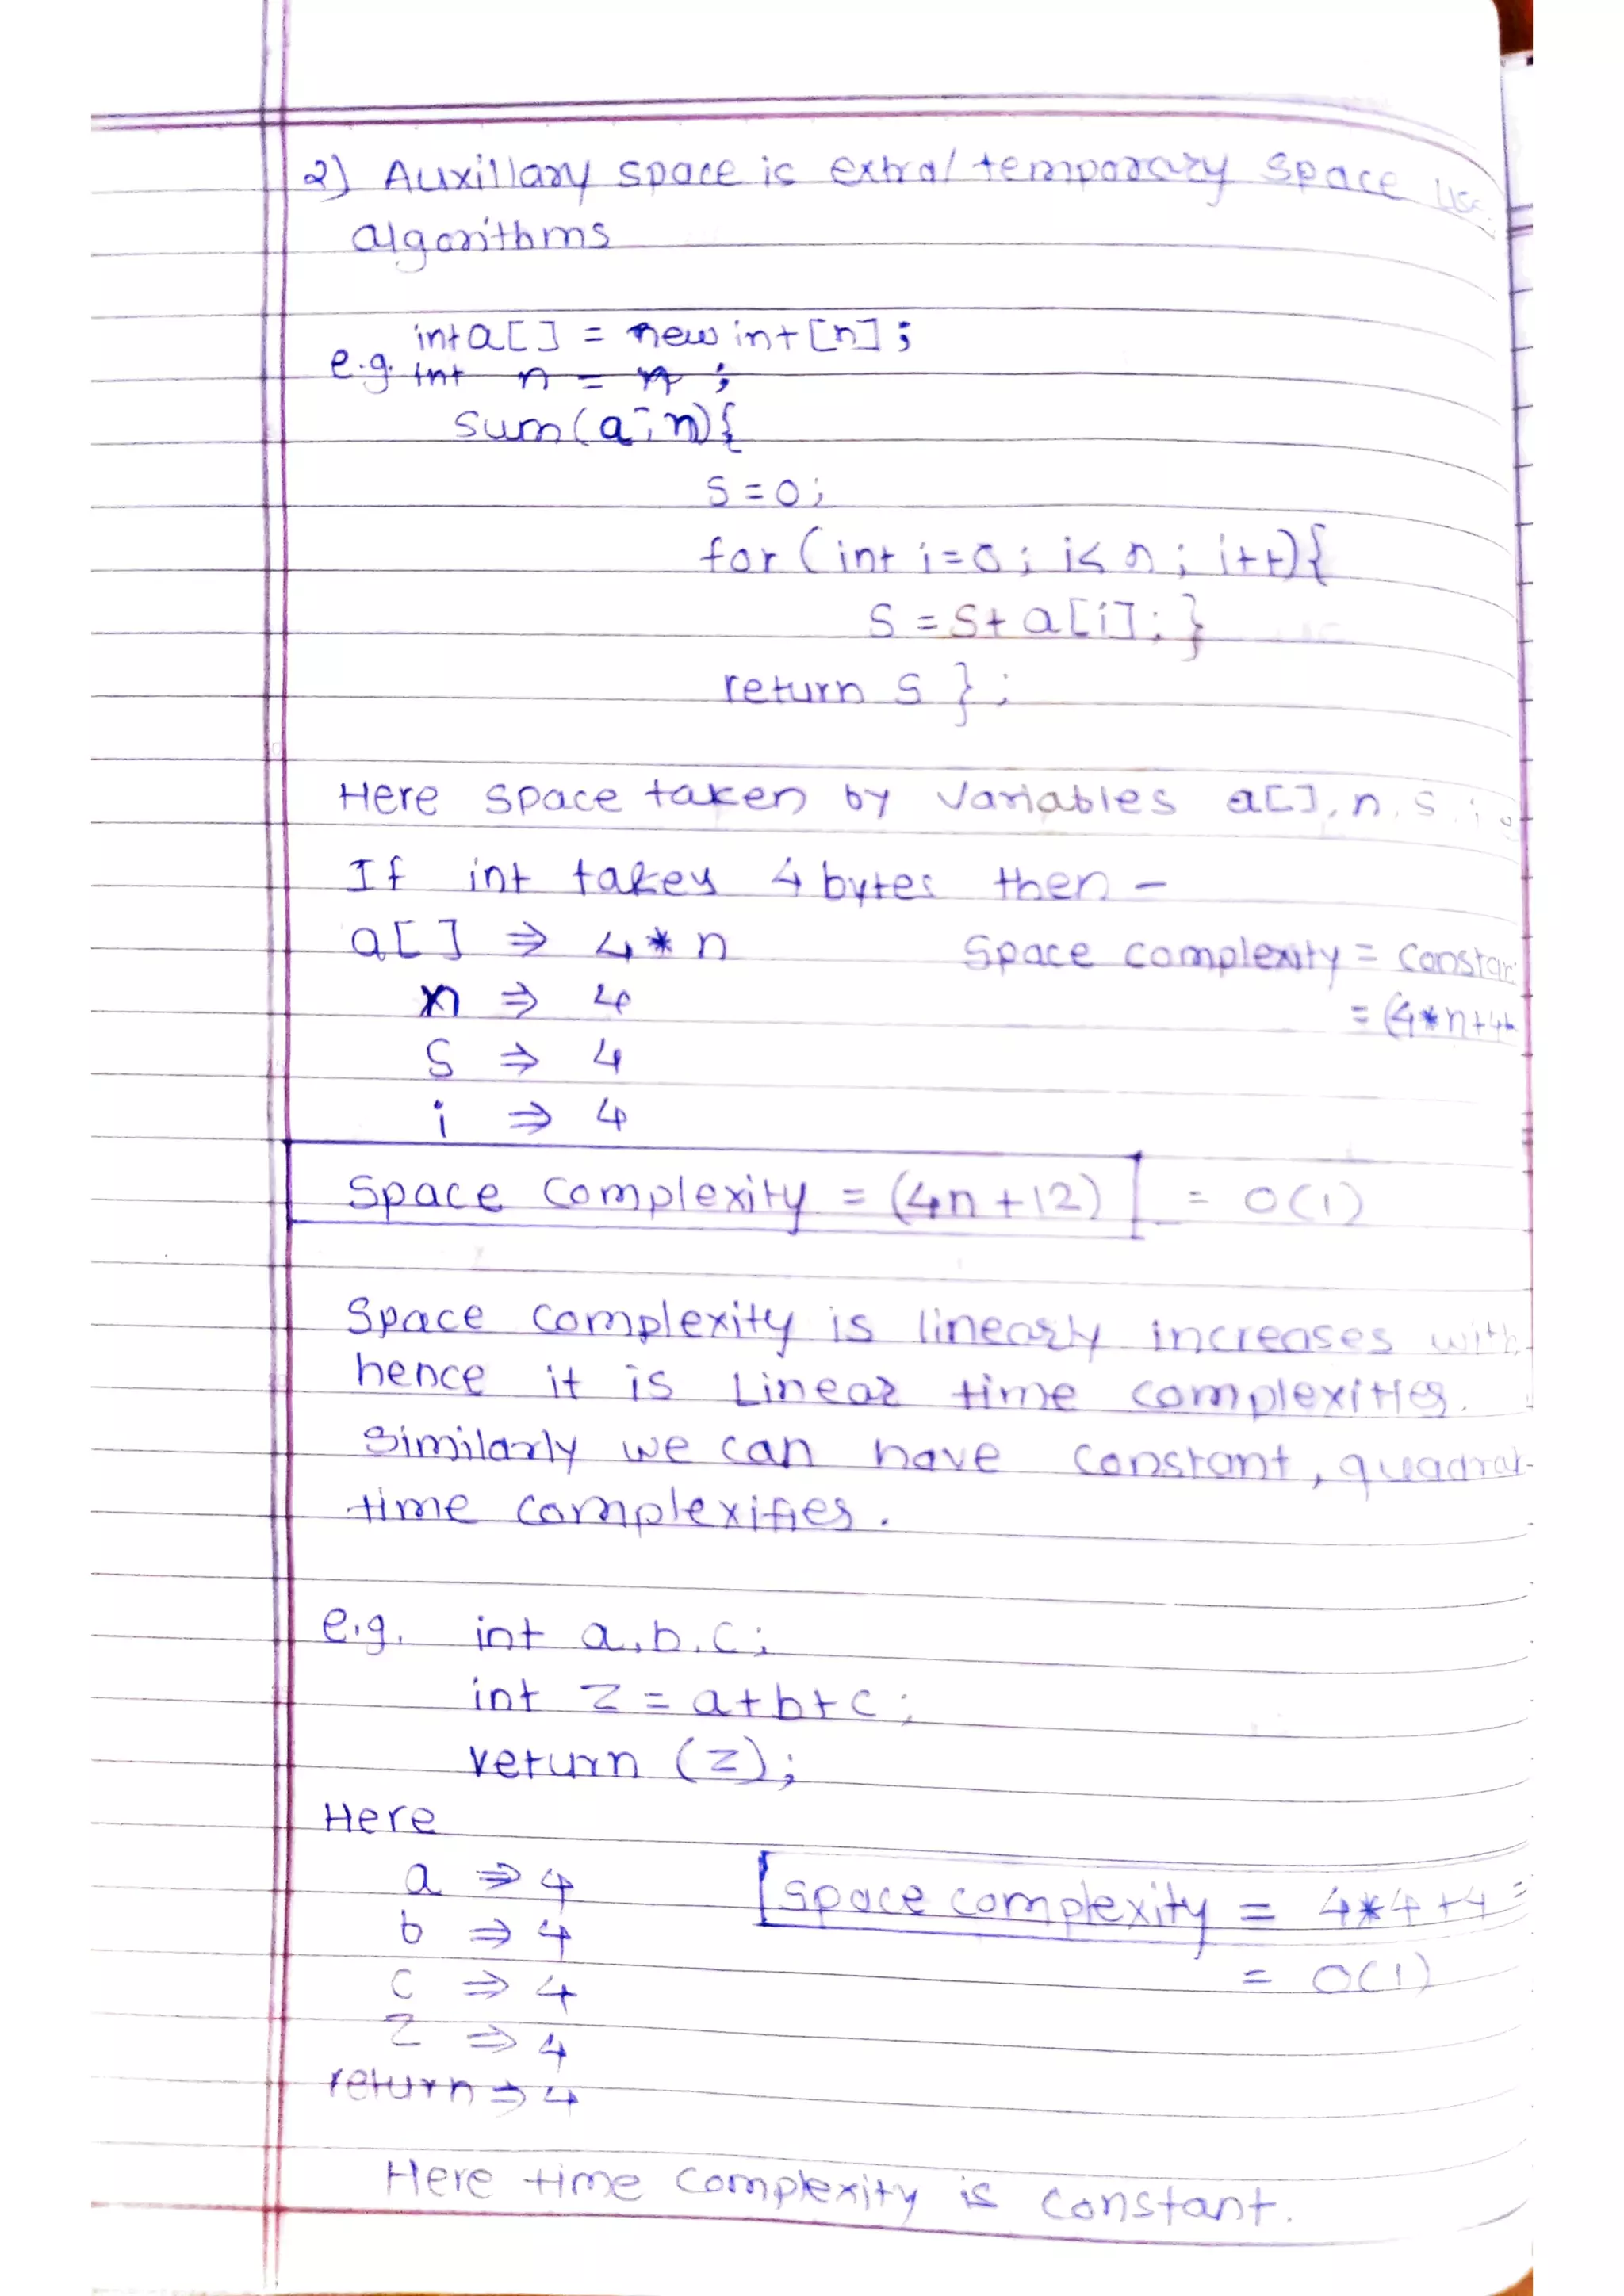 2) Auxillary space is extra/temporary space
algorithms
int a[] = new int[n];
e.g. int n = n ;
sum(a, n){
s=0;
for (int i=0; i< n; i++){
s = s+ a[i]; }
return s } ;
Here space taken by variables a[], n, s, i
If int takes 4 bytes then -
a[] ⇒ 4 * n
Space complexity =
n ⇒ 4
= (4*n+4+
s ⇒ 4
i ⇒ 4
Space Complexity = (4n +12) = O(1)
Space complexity is linearly increases with
hence it is Linear time complexities.
Similarly we can have constant,
time complexities.
e.g. int a, b, c;
int z = a+b+c ;
return (z);
Here
a ⇒ 4
space complexity = 4*4+4 =
b ⇒ 4
= O(1)
c ⇒ 4
z ⇒ 4
return ⇒ 4
Here time complexity is constant.